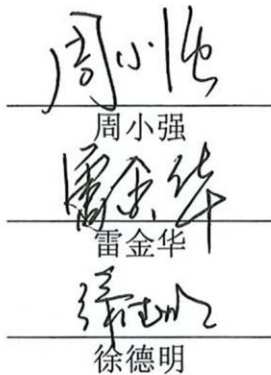 周小强
周小强
雷金华
雷金华
徐德明
徐德明